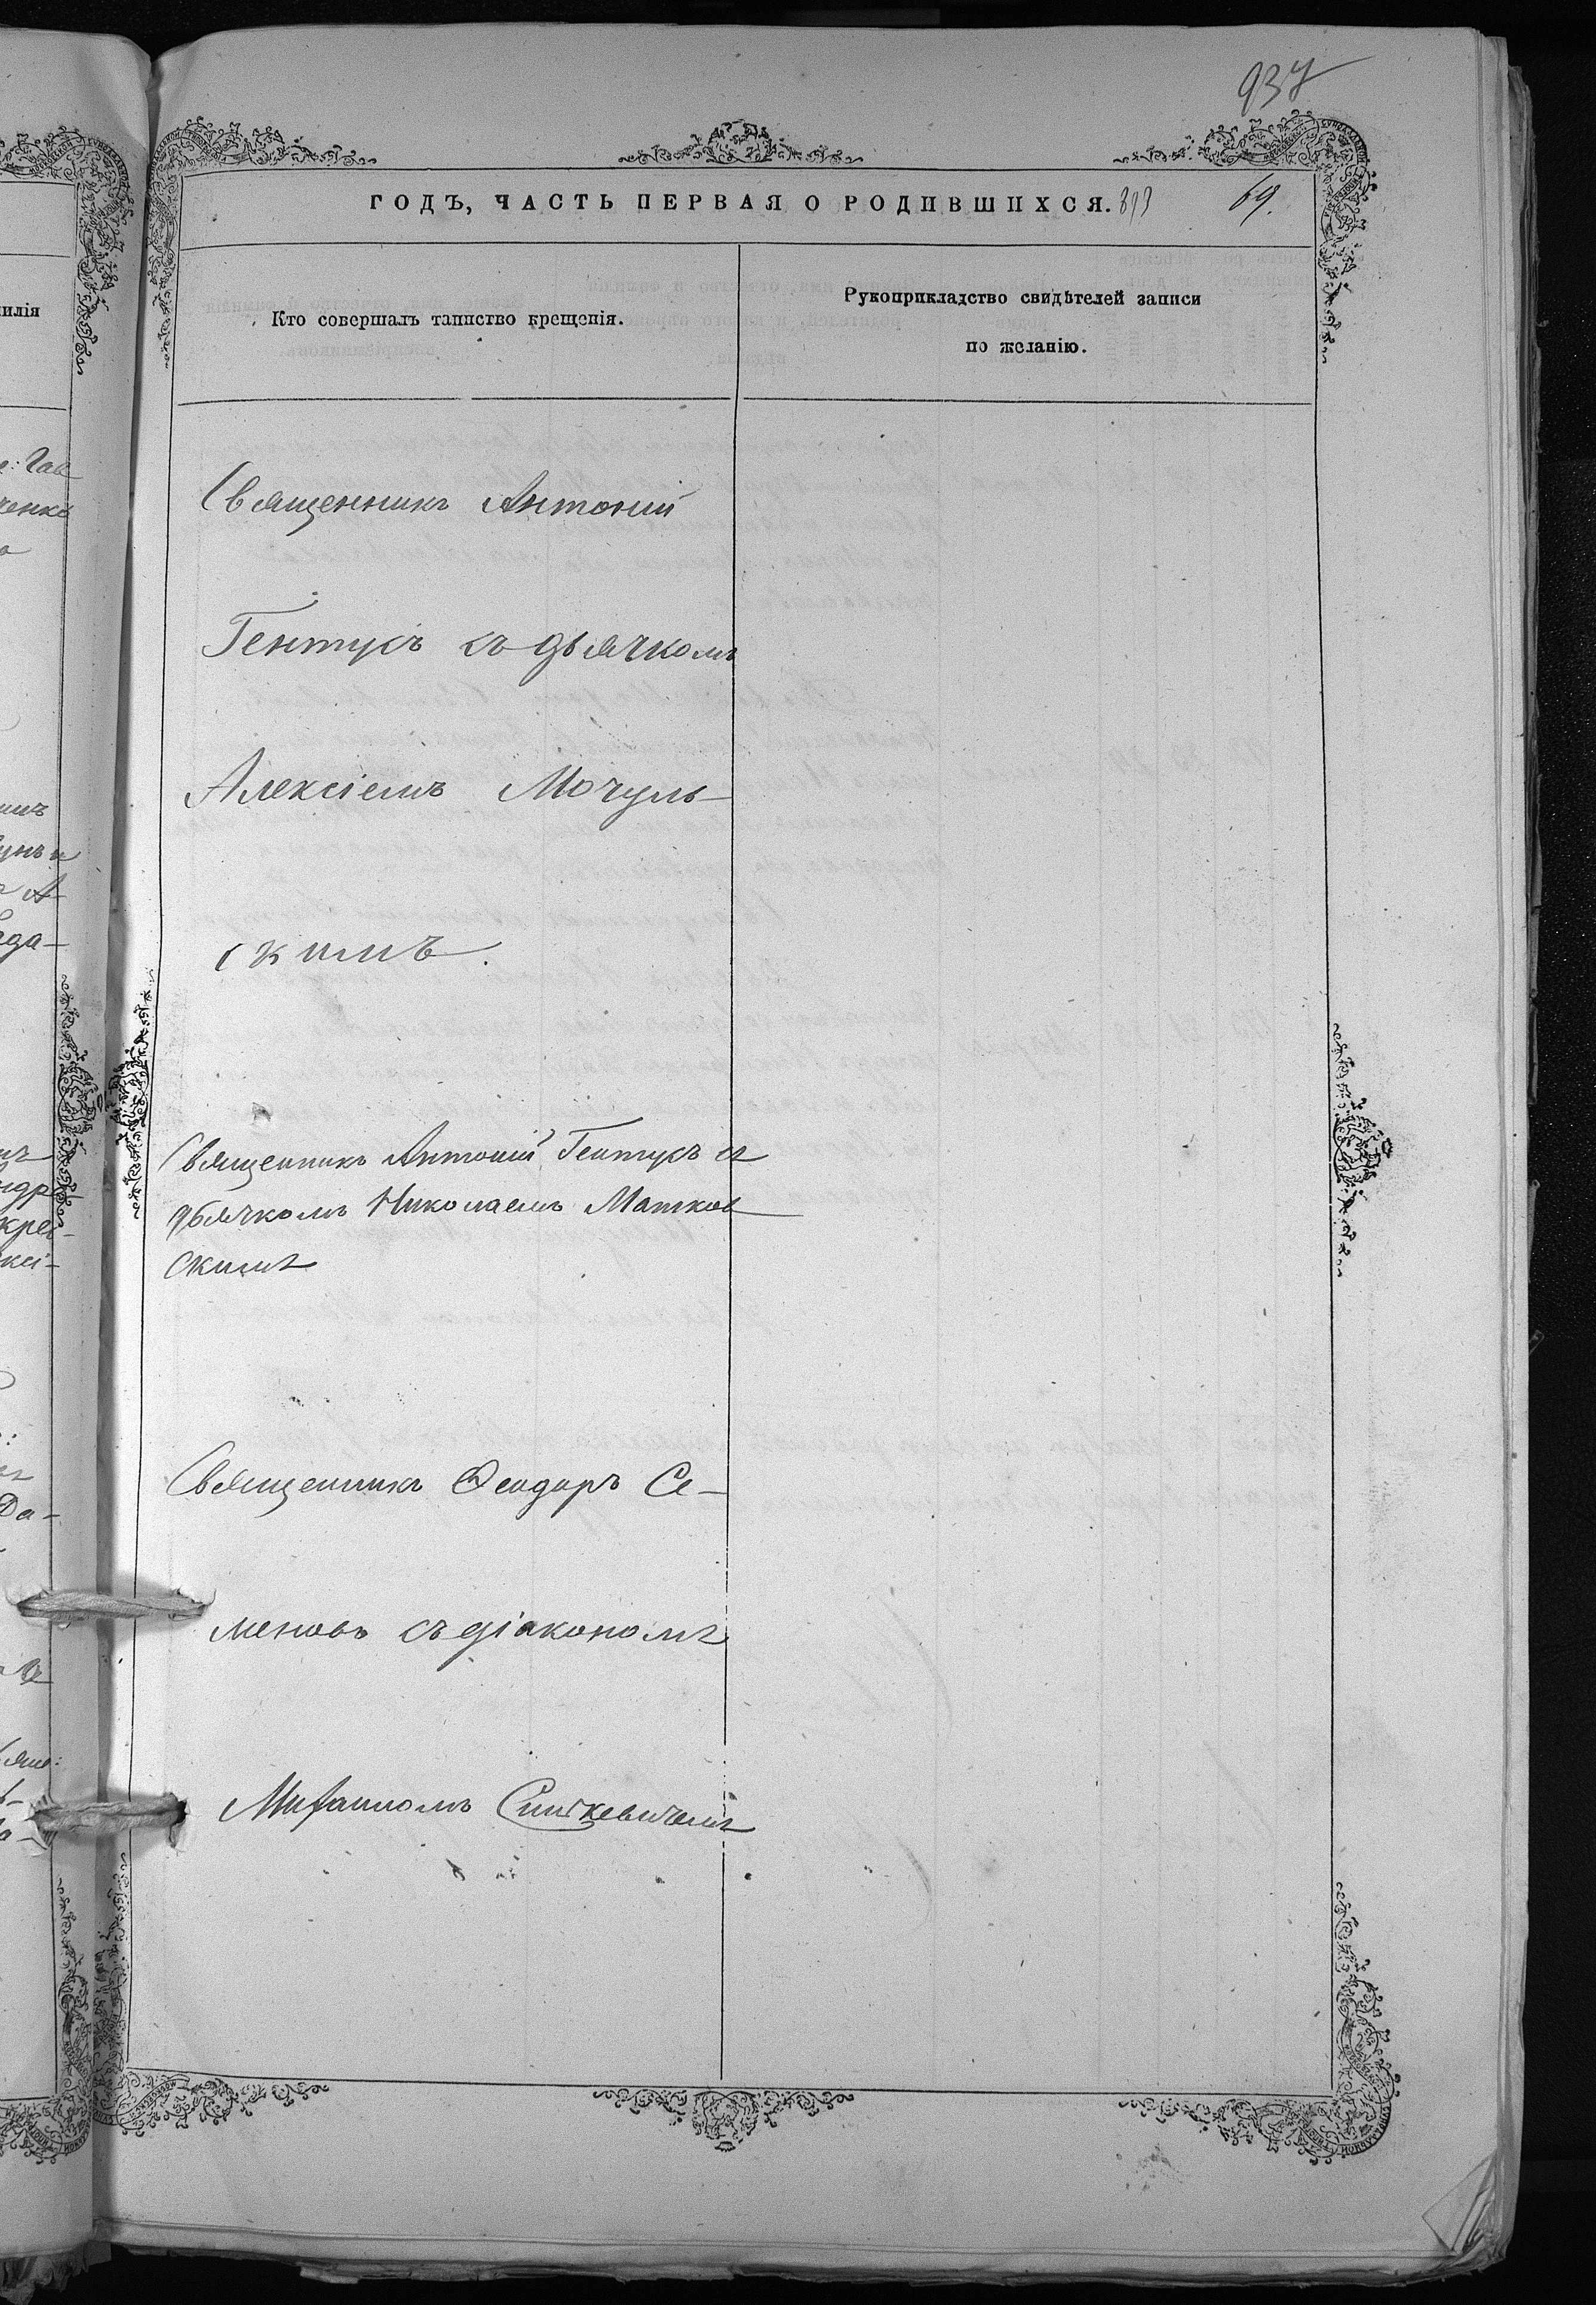 937
ГОДЪ, ЧАСТЬ ПЕРВАЯ О РОДИВШИХСЯ. 893 69.
илія
Кто совершалъ таинство крещенія.
Рукоприкладство свидѣтелей записи
по желанію.
Священникъ Антоній
Гентукъ съ дьячкомъ
Алексіемъ Мочуль-
скимъ.
Священникъ Антоній Гентукъ съ
дьячкомъ Николаемъ Матков
скимъ
Священникъ Ѳеодоръ Се-
меновъ съ діакономъ
Михаиломъ Синкевичемъ